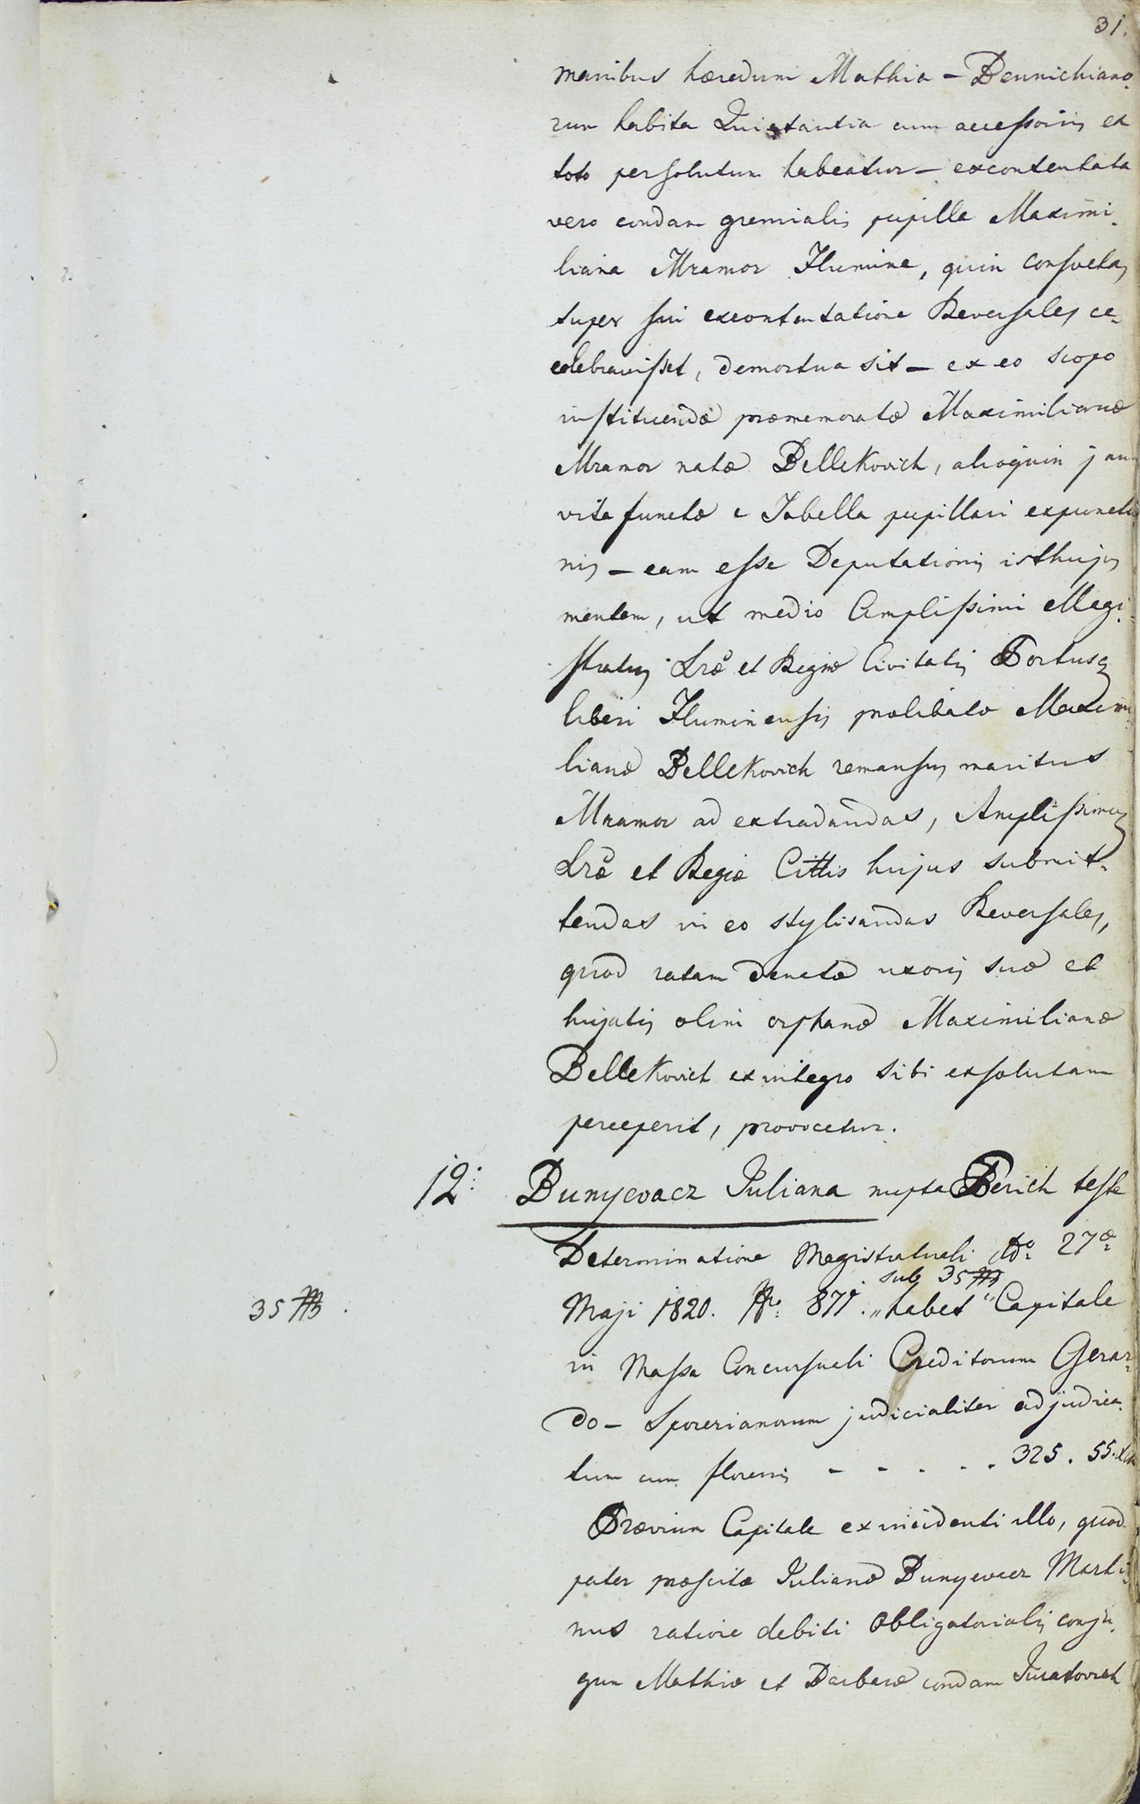 31.
manibus hæredum Mathia – Dennichiano-
rum habita Quietantia cum accessoriis ex
toto persolutum habeatur – excontentata
vero condam gremialis pupilla Maximi-
liana Mramor Flumine, quin consvetas
super sui excontentatione Reversales ce-
celebravisset, demortua sit – ex eo scopo
instituendæ præmemoratæ Maximilianæ
Mramor natæ Bellekovich, alioquin jam
vita functæ e Tabella pupillari expunctio-
nis – eam esse Deputationis isthujus
mentem, ut medio Amplissimi Magi-
stratus Lræ et Regiæ Civitatis Portusq
liberi Fluminensis prælibatæ Maximi-
lianæ Bellekovich remansus maritus
Mramor ad extradandas, Amplissimoq
Lræ et Regiæ Cittis hujus submit-
tendas in eo stylisandas Reversales,
quod ratam denatæ uxoris suæ et
hujatis olim orphanæ Maximilianæ
Bellekovich ex integro sibi exsolutam
perceperit, provocetur.
12: Bunyevacz Juliana nupta Perich teste
Determinatione Magistratuali ddo 27æ
sub 35 m/3
35 m/3. Maji 1820. Nro 877. „habet“ Capitale
in Massa Concursuali Creditorum Gerar-
do – Sporerianorum judicialiter adjudica-
tum cum florenis - - - - - 325. 55. xris
Prævium Capitale ex incidenti illo, quod
pater præscitæ Julianæ Bunyevacz Marti-
nus ratione debiti Obligatorialis conju-
gum Mathiæ et Barbaræ condam Juratovich